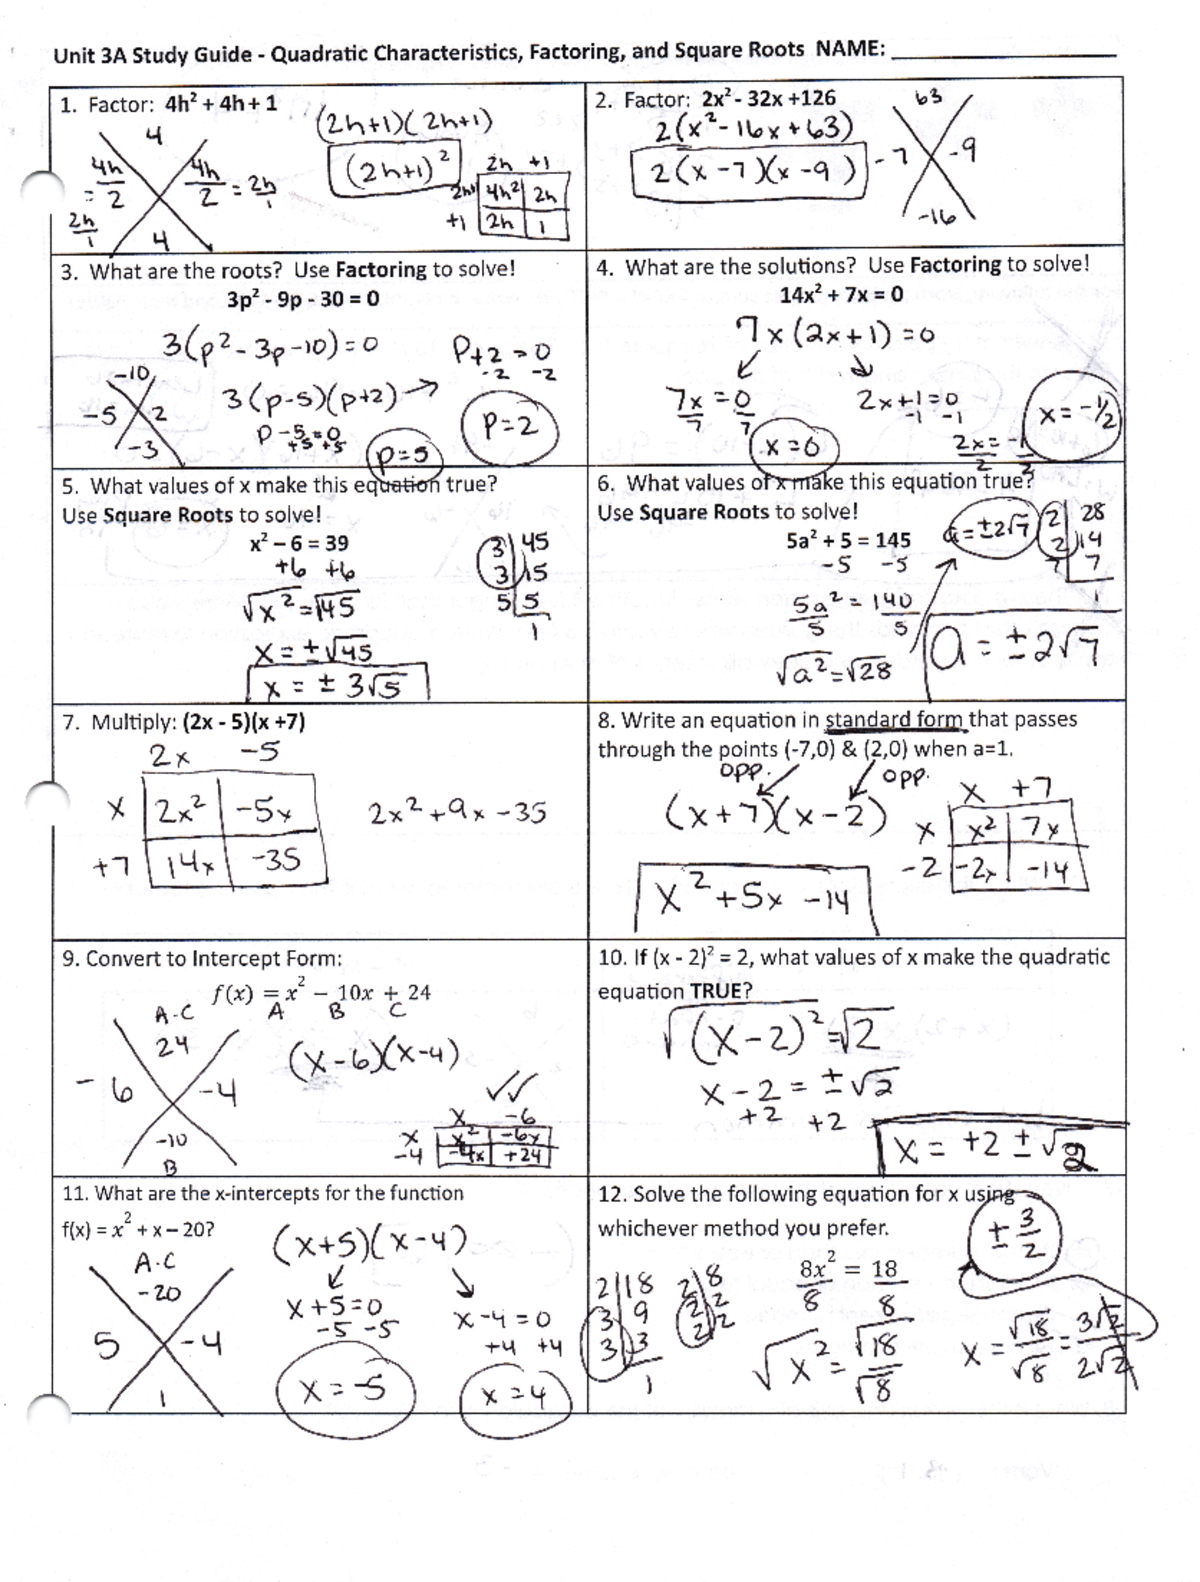 Unit 3A Study Guide - Quadratic Characteristics, Factoring, and Square Roots NAME:
1. Factor: 4h² + 4h + 1
4
4h/2 = 2h/1
4h/2 = 2h/1
4
(2h+1)(2h+1)
(2h+1)²
2h +1
2h 4h² 2h
+1 2h 1
2. Factor: 2x² - 32x +126
2(x²-16x+63)
2(x-7)(x-9)
63
-7 -9
-16
3. What are the roots? Use Factoring to solve!
3p² - 9p - 30 = 0
3(p²-3p-10)=0
-10
-5 2
-3
3(p-5)(p+2)
p-5=0
+5 +5
p=5
p+2=0
-2 -2
p=2
4. What are the solutions? Use Factoring to solve!
14x² + 7x = 0
7x(2x+1)=0
7x=0
7 7
x=0
2x+1=0
-1 -1
2x=-1
2 2
x=-1/2
5. What values of x make this equation true?
Use Square Roots to solve!
x² – 6 = 39
+6 +6
√x²=√45
x=±√45
x=±3√5
3 45
3 15
5 5
1
6. What values of x make this equation true?
Use Square Roots to solve!
5a² + 5 = 145
-5 -5
5a²=140
5 5
√a²=√28
a=±2√7
2 28
2 14
7 7
1
a=±2√7
7. Multiply: (2x - 5)(x +7)
2x -5
x 2x² -5x
+7 14x -35
2x²+9x-35
8. Write an equation in standard form that passes
through the points (-7,0) & (2,0) when a=1.
opp. opp.
(x+7)(x-2)
x²+5x-14
x +7
x x² 7x
-2 -2x -14
9. Convert to Intercept Form:
f(x) = x² − 10x + 24
A B C
A·C
24
-6 -4
-10
B
(x-6)(x-4)
✓✓
x -6
x x² -6x
-4 -4x +24
10. If (x - 2)² = 2, what values of x make the quadratic
equation TRUE?
√(x-2)²=√2
x-2=±√2
+2 +2
x=+2±√2
11. What are the x-intercepts for the function
f(x) = x² + x – 20?
A·C
-20
5 -4
1
(x+5)(x-4)
x+5=0
-5 -5
x=-5
x-4=0
+4 +4
x=4
12. Solve the following equation for x using
whichever method you prefer.
8x² = 18
8 8
2 18
3 9
3 3
1
2 8
2 2
2 2
√x²=√18/√8
x=√18/√8=3√2/2√2
±3/2